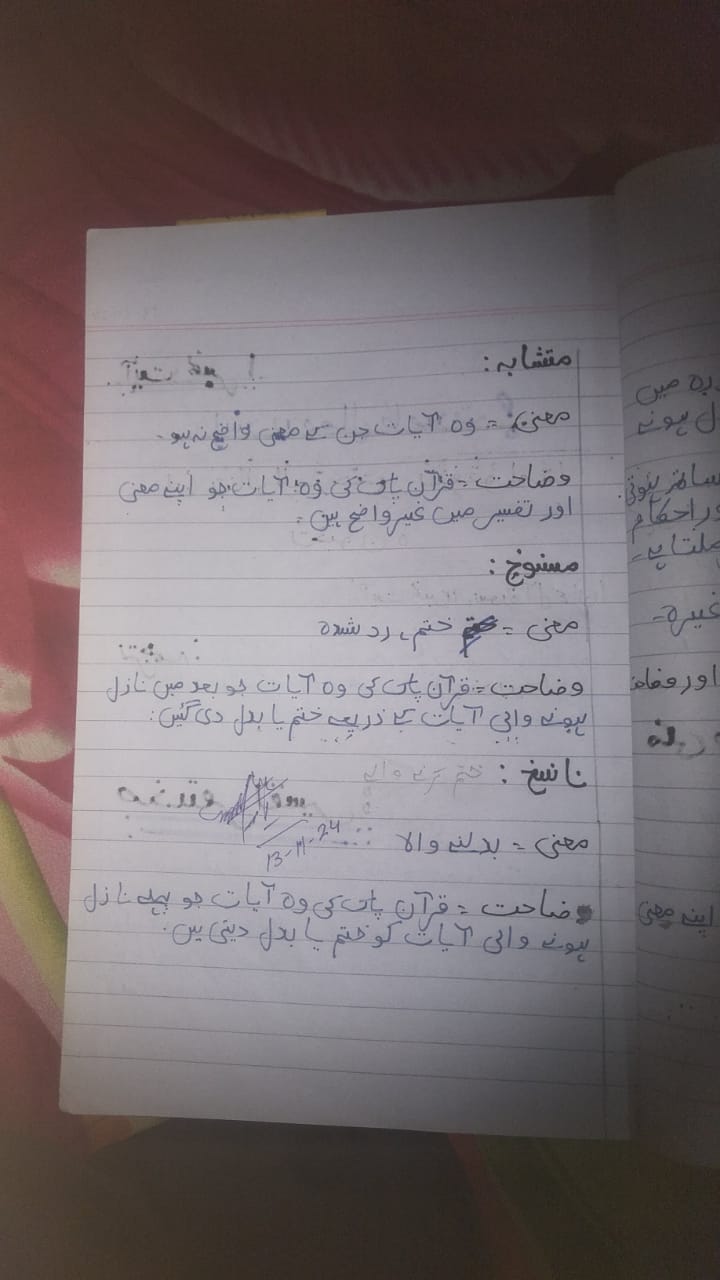 متشابہ:
معنی = وہ آیات جن کے معنی واضح نہ ہو۔
وضاحت = قرآن پاک کی وہ آیات جو اپنے معنی
اور تفسیر میں غیر واضح ہیں۔
منسوخ:
معنی = ختم، رد شدہ
وضاحت = قرآن پاک کی وہ آیات جو بعد میں نازل
ہونے والی آیات کے ذریعے ختم یا بدل دی گئیں۔
ناسخ: ختم کرنے والے
13-11-24
معنی = بدلنے والا
وضاحت = قرآن پاک کی وہ آیات جو پہلے نازل
ہونے والی آیات کو ختم یا بدل دیتی ہیں۔
میں
ل ہونے
ور احکام
ملتا ہے۔
غیرہ۔
اپنے معنی